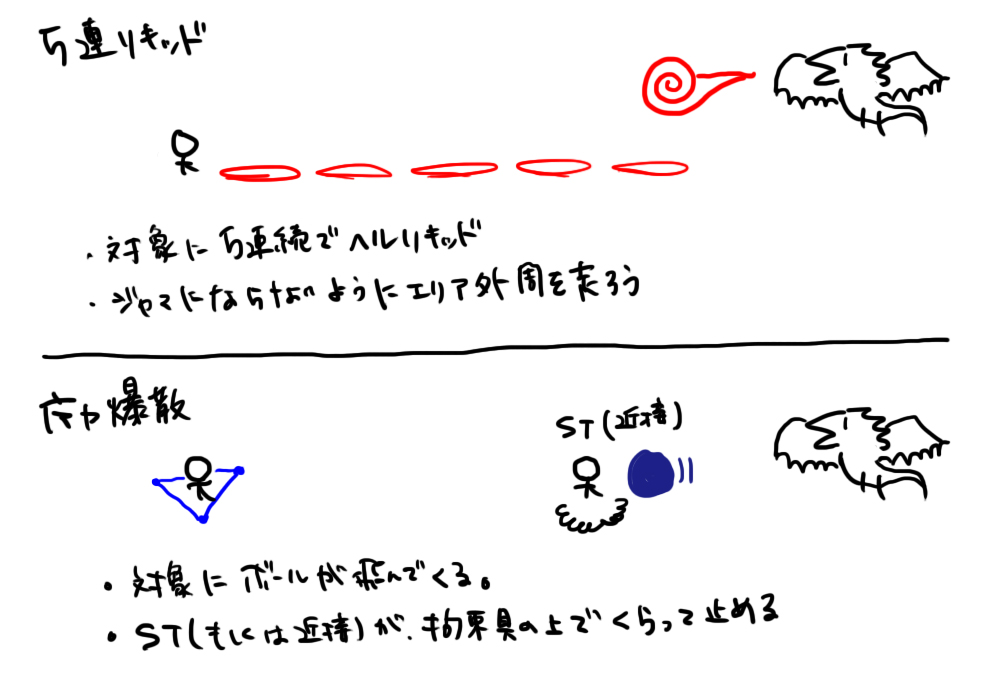 5連リキッド
・対象に5連続でヘルリキッド
・ジャマにならないようにエリア外周を走ろう
魔力爆散
ST(近接)
・対象にボールが飛んでくる。
・ST(もしくは近接)が、拘束具の上でくらって止める